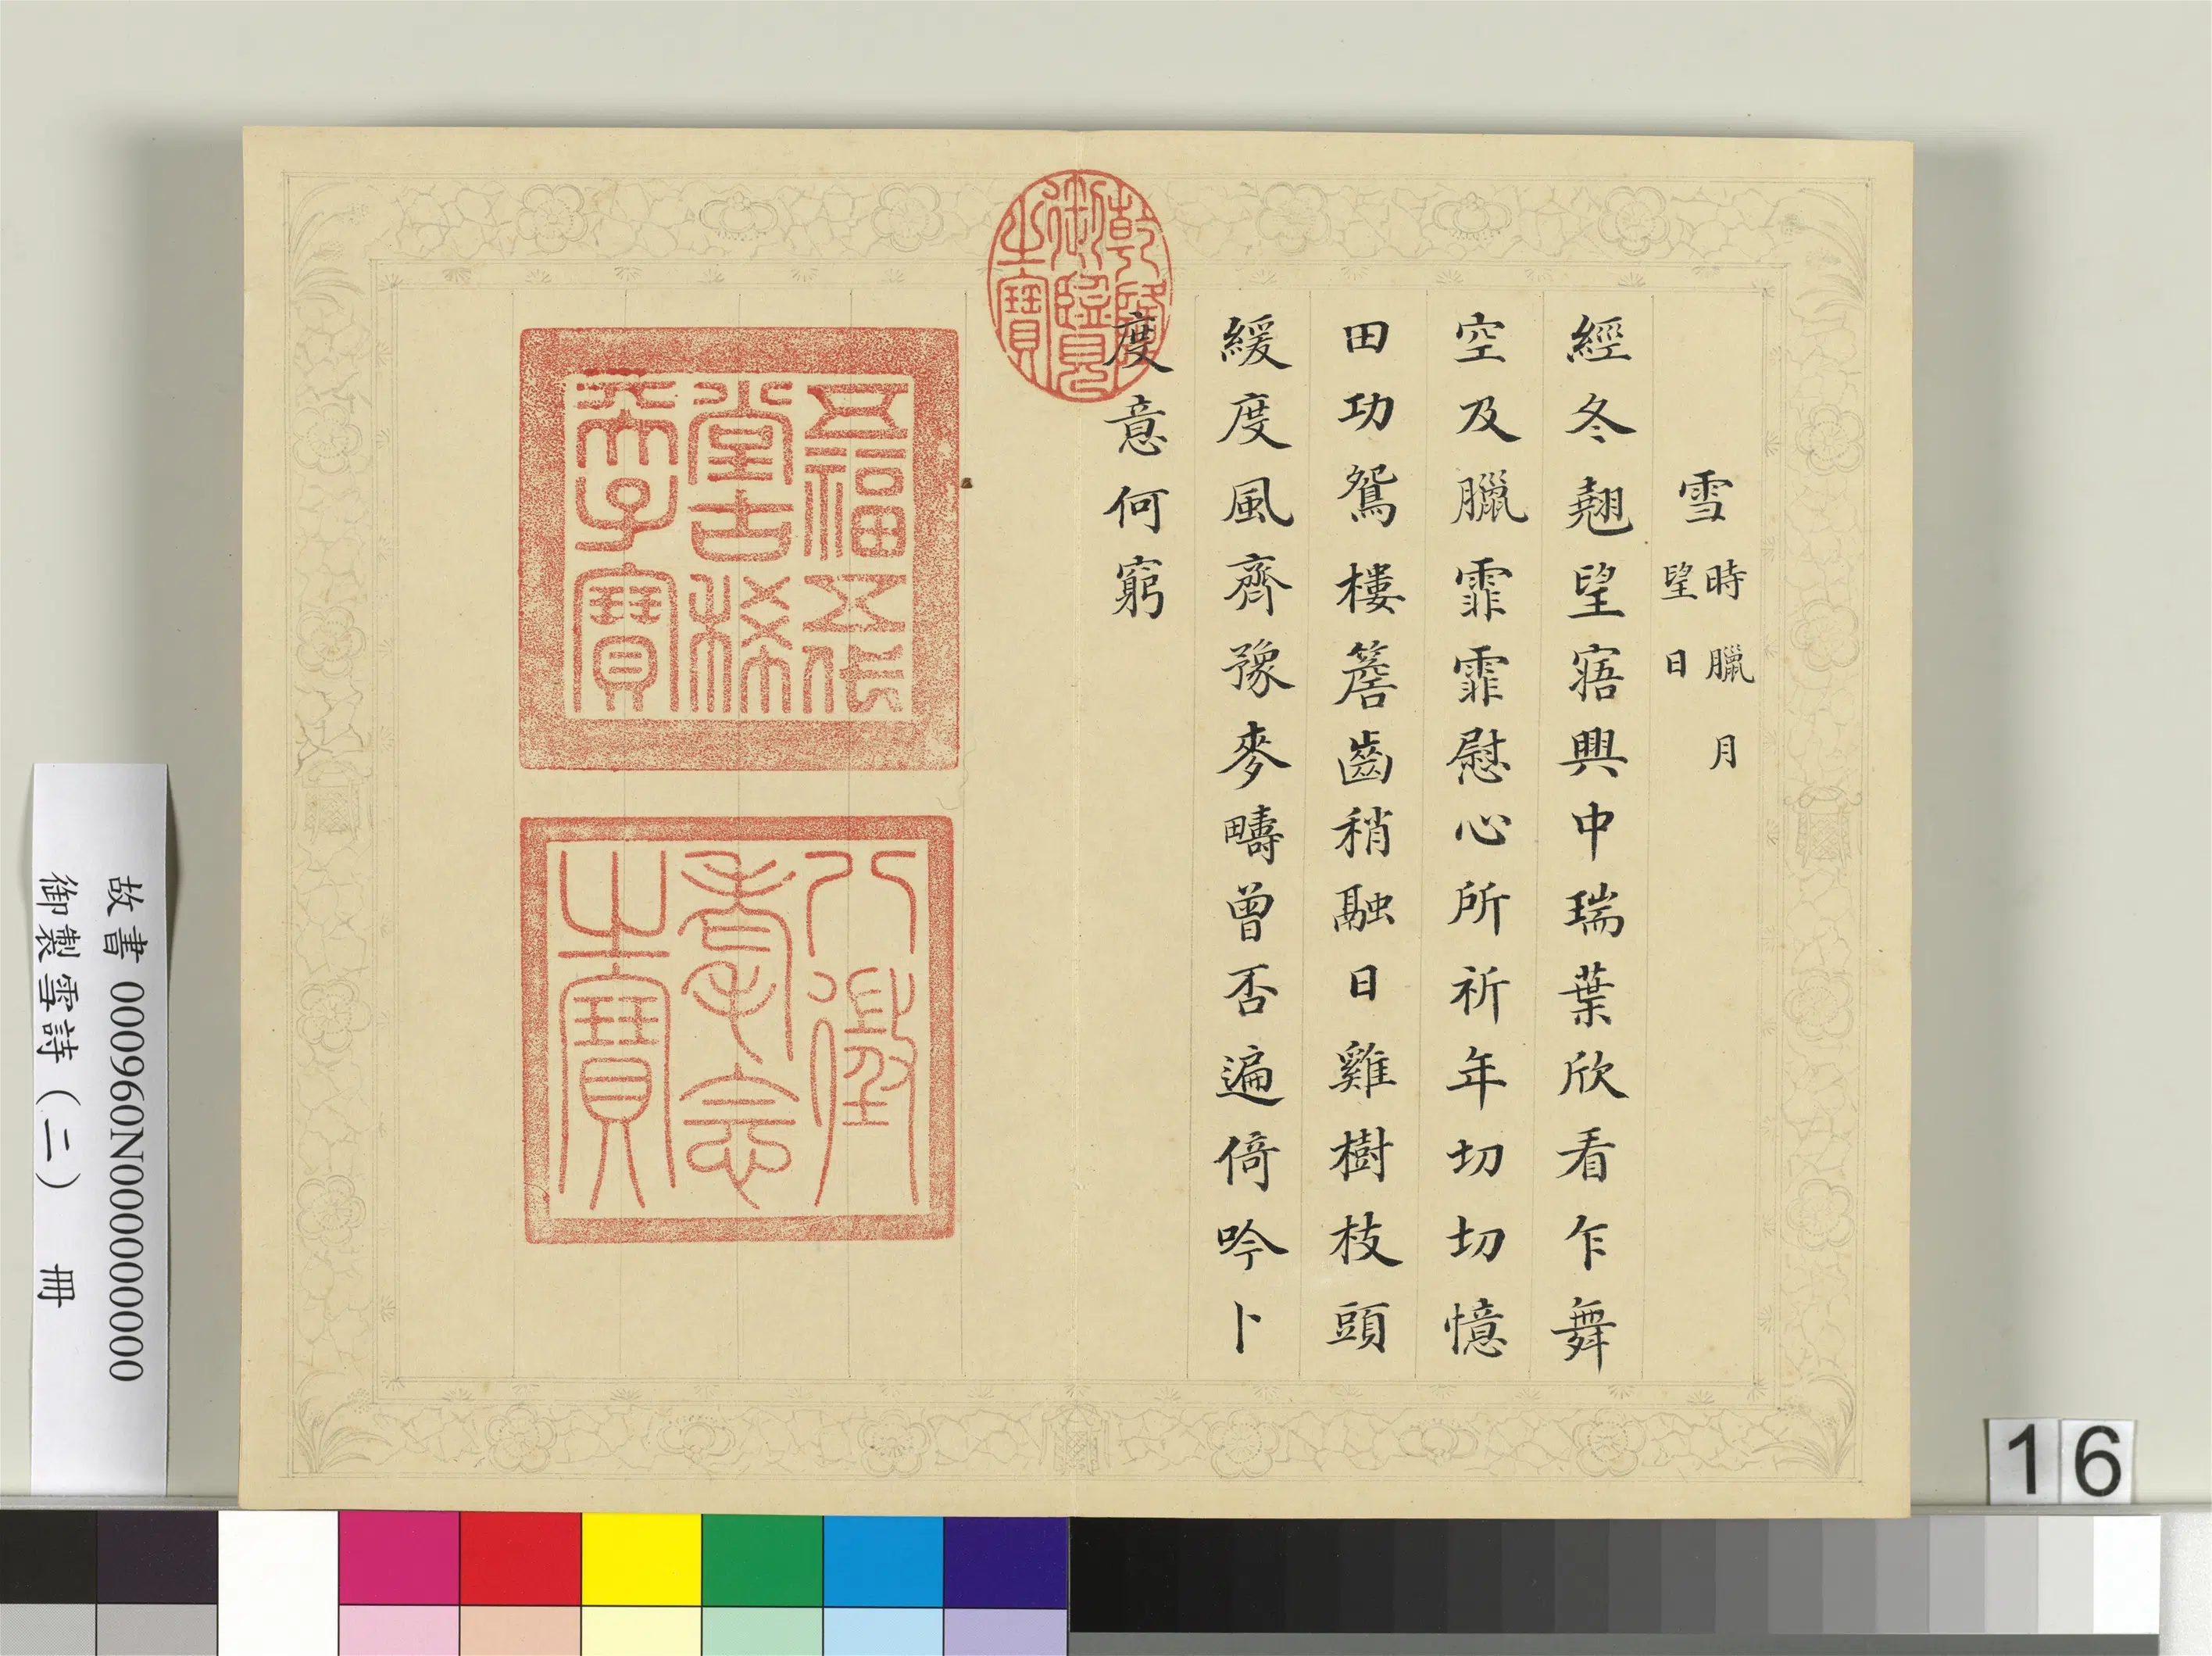 雪時臘月
望日
經冬翹望寤興中瑞葉欣看乍舞
空及臘霏霏慰心所祈年切切憶
田功鴛樓簷齒稍融日雞樹枝頭
緩度風齊豫麥疇曾否遍倚吟卜
度意何窮
乾隆御覽之寶
五福五代堂古稀天子寶
八徵耄念之寶
故書 000960N000000000
御製雪詩（二） 冊
16